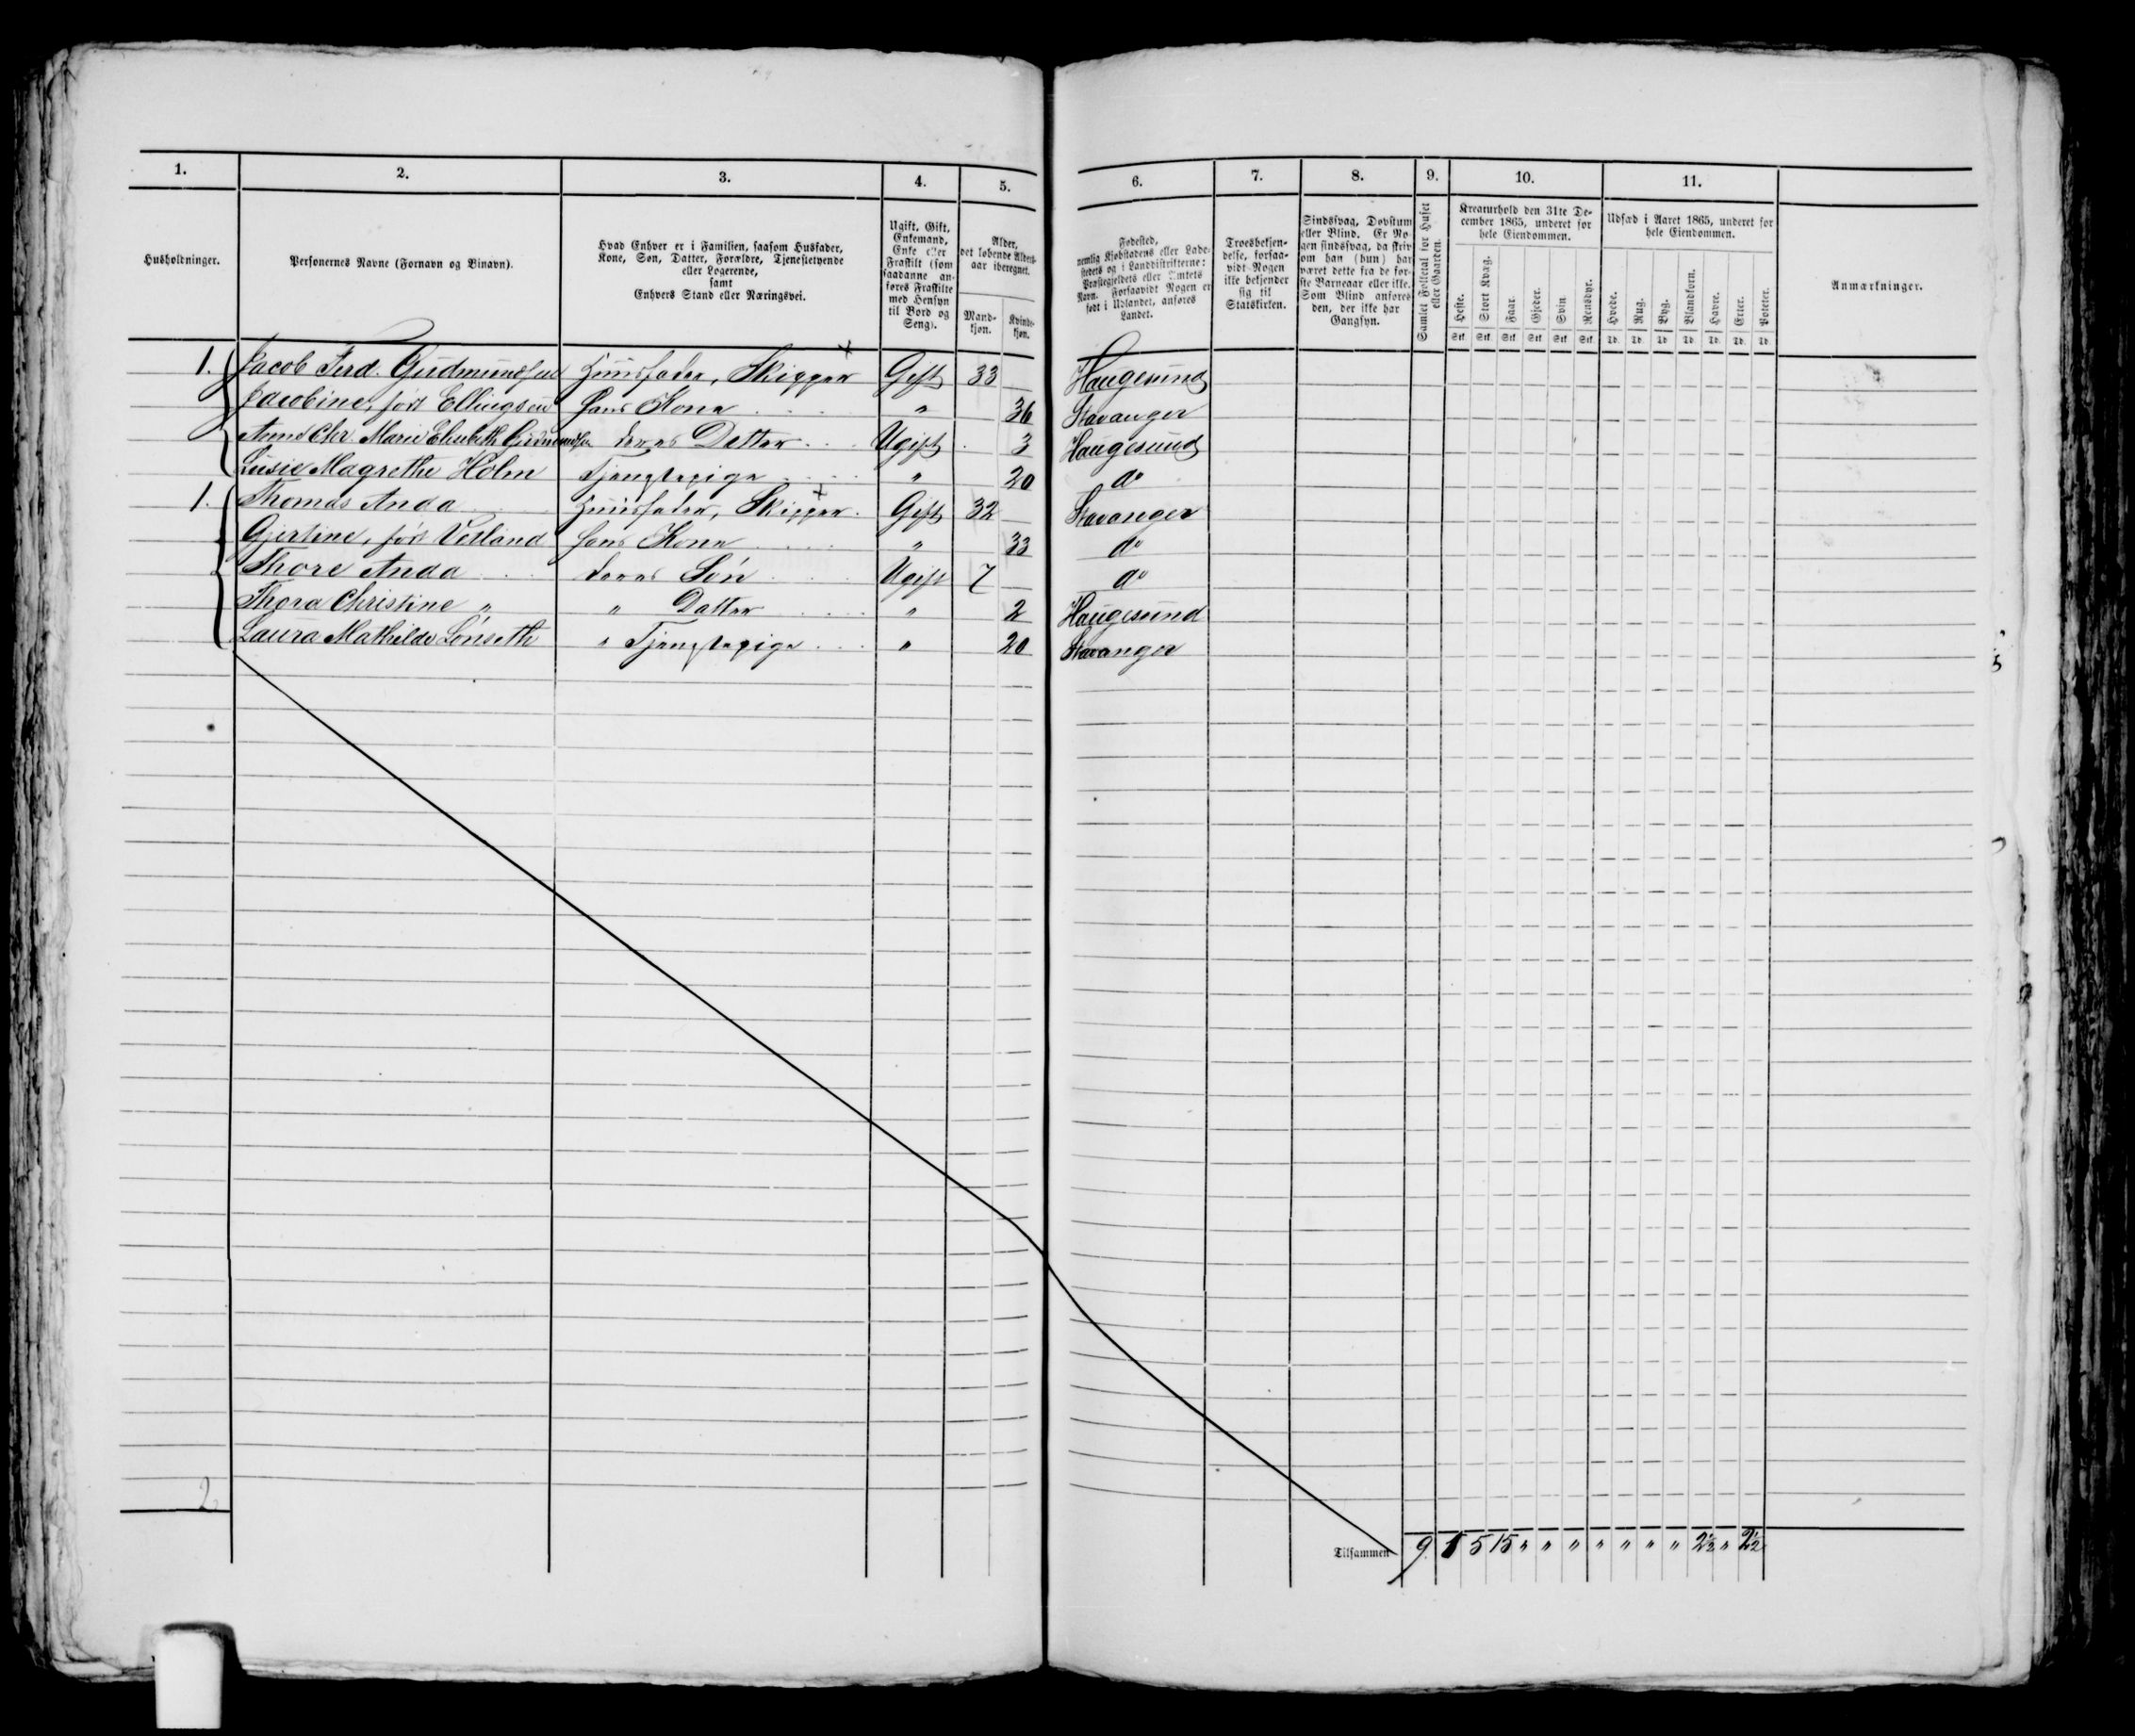 1. 2. 3. 4. 5. 6. 7. 8. 9. 10. 11.
Husholdninger.
Personernes Navne (Fornavn og Binavn).
Hvad Enhver er i Familien, saasom Husfader,
Kone, Søn, Datter, Forældre, Tjenestetyende
eller Logerende,
samt
Enhvers Stand eller Næringsvei.
Ugift, Gift,
Enkemand,
Enke eller
Fraskilt (som
saadanne an-
føres Fraskilte
med Hensyn
til Bord og
Seng).
Alder,
det løbende Alders-
aar iberegnet.
Mand-
kjøn.
Kvinde-
kjøn.
Fødested,
nemlig Kjøbstadens eller Lade-
stedets og i Landdistrikterne:
Præstegjeldets eller Amtets
Navn. Forsaavidt Nogen er
født i Udlandet, anføres
Landet.
Troesbekjen-
delse, forsaa-
vidt Nogen
ikke bekjender
sig til
Statskirken.
Sindssvag, Døvstum
eller Blind. Er No-
gen sindssvag, da skriv
om han (hun) har
været dette fra de før-
ste Barneaar eller ikke.
Som Blind anføres
den, der ikke har
Gangsyn.
Samlet Folketal for Huset
eller Gaarden.
Kreaturhold den 31te De-
cember 1865, underet for
hele Eiendommen.
Heste. Stort Kvæg. Faar. Gjeder. Svin. Rensdyr.
Stk. Stk. Stk. Stk. Stk. Stk.
Udsæd i Aaret 1865, underet for
hele Eiendommen.
Hvede. Rug. Byg. Blandkorn. Havre. Erter. Poteter.
Td. Td. Td. Td. Td. Td. Td.
Anmærkninger.
1. Jacob Ferd. Gudmundsen Huusfader, Skipper Gift 33 Haugesund
Jacobine, født Ellingsen hans Kone " 36 Stavanger
Anne Chr. Marie Elisabeth Gudmundsen deres Datter Ugift 3 Haugesund
Lusie Magrethe Holm Tjenestepige " 20 do
1. Thomas Anda Huusfader, Skipper Gift 32 Stavanger
Gjertine, født Vetland hans Kone " 33 do
Thore Anda deres Søn Ugift 7 do
Thora Christine " " Datter " 2 Haugesund
Laura Mathilde Lønseth " Tjenestepige " 20 Stavanger
2
Tilsammen 9 1 5 15 " " " " " " " 2½ " 2½